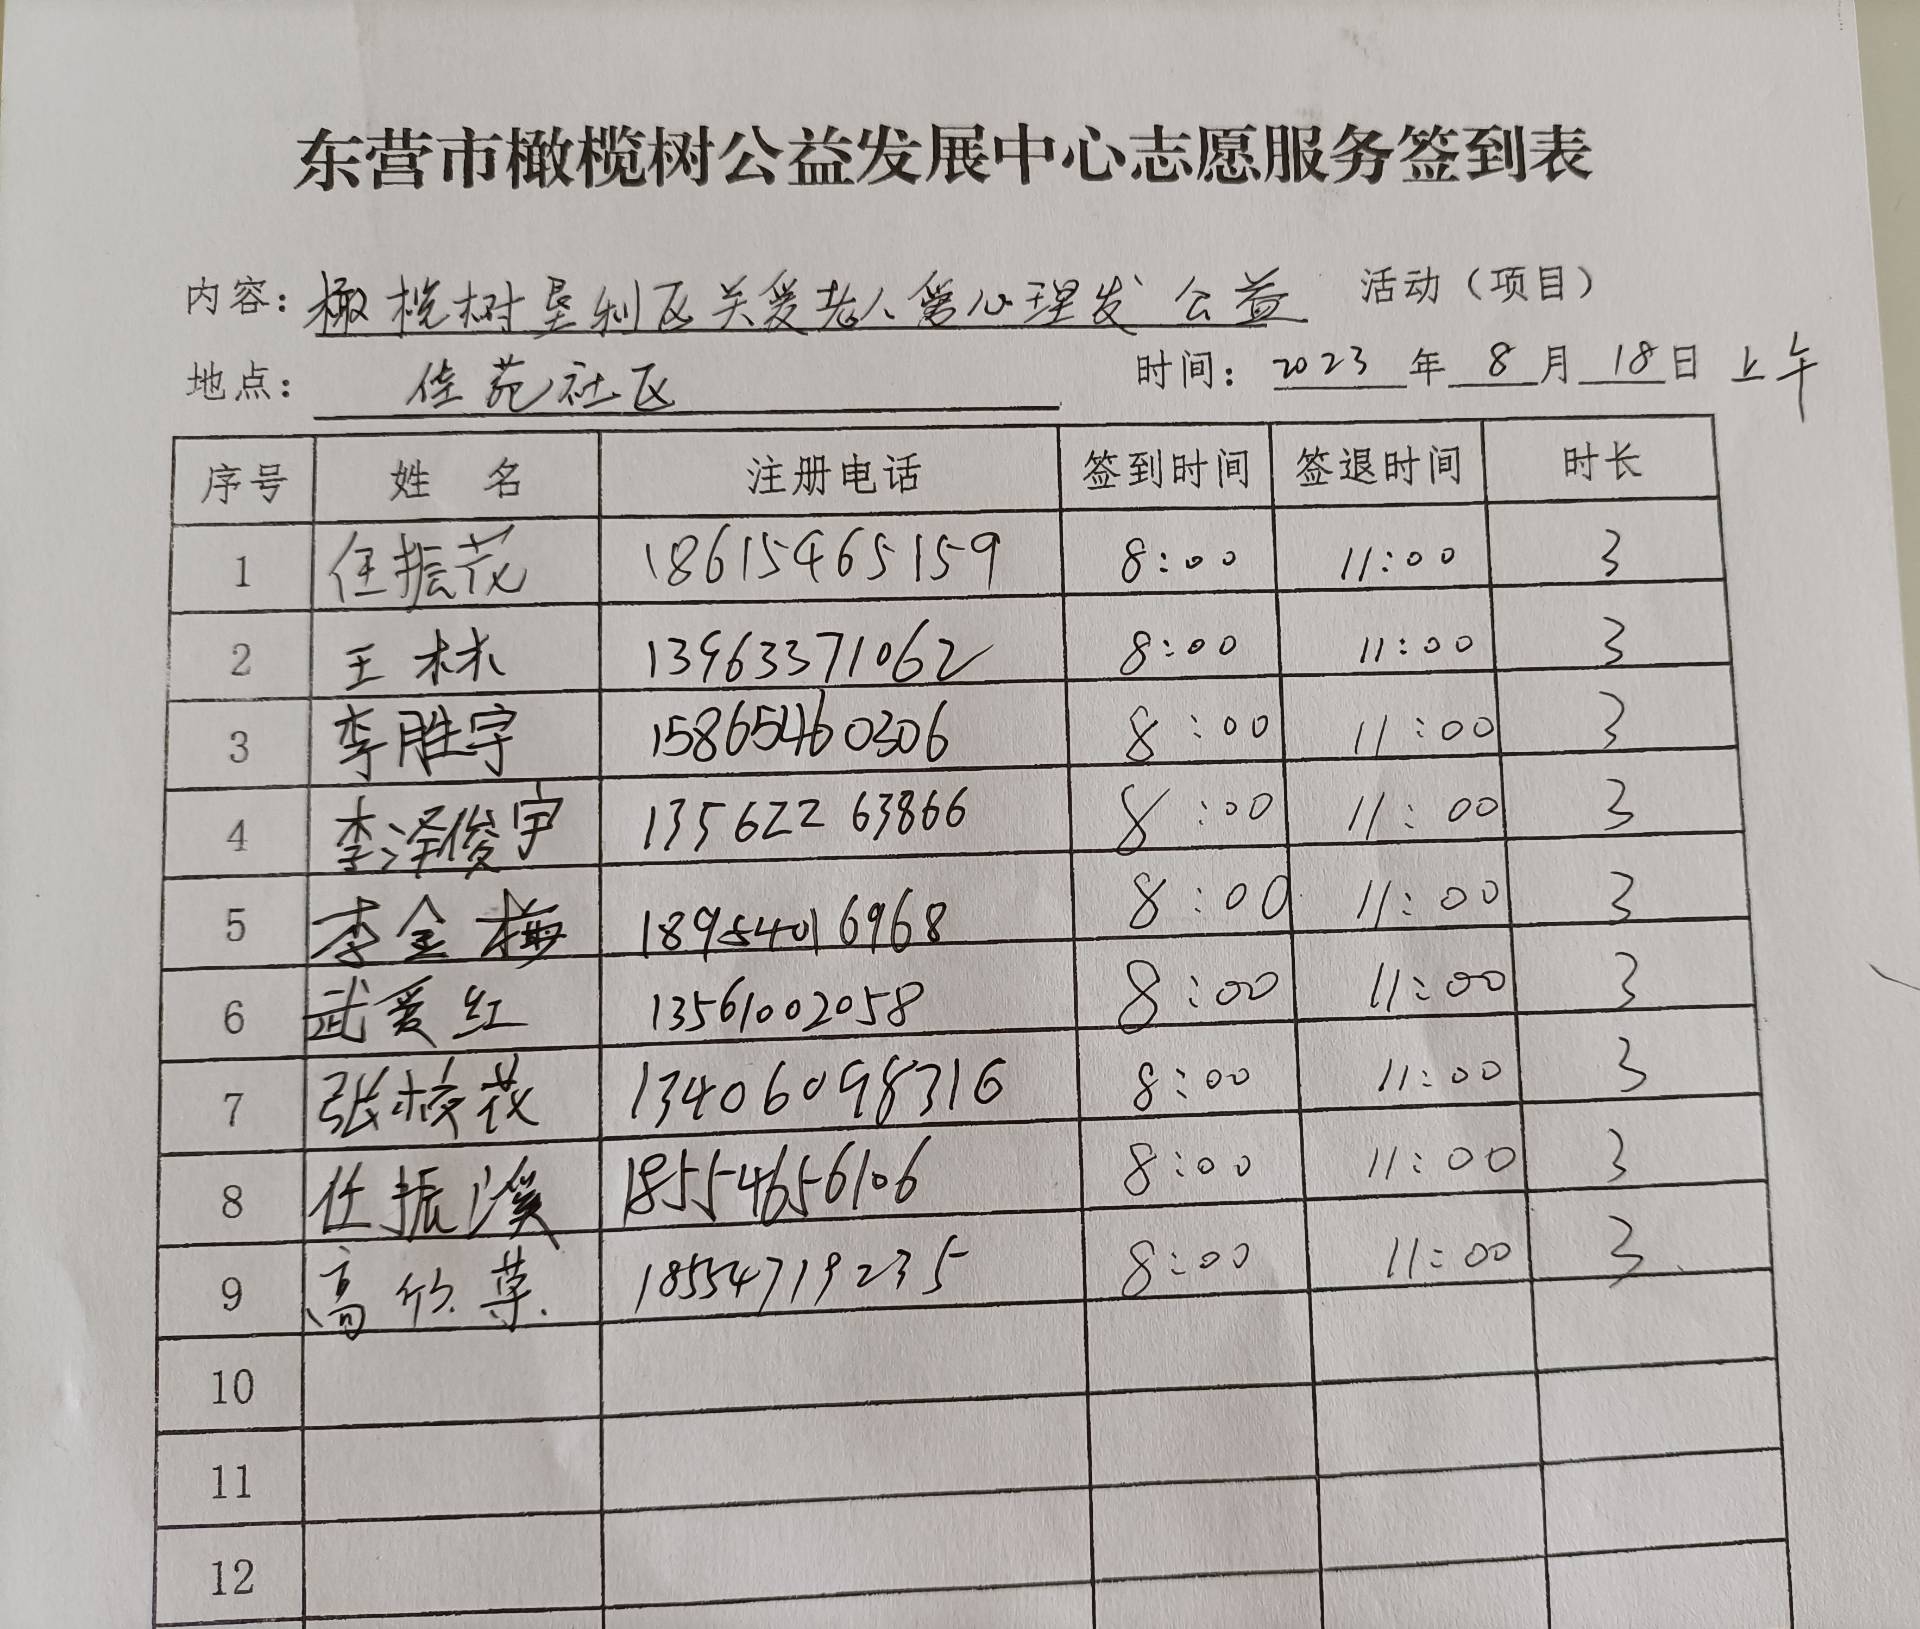 东营市橄榄树公益发展中心志愿服务签到表
内容：橄榄树垦利区关爱老人爱心理发公益 活动（项目）
地点：佳苑社区 时间：2023年8月18日上午
序号 姓名 注册电话 签到时间 签退时间 时长
1 任振花 18615465159 8:00 11:00 3
2 王林 13963371062 8:00 11:00 3
3 李胜宇 15865460306 8:00 11:00 3
4 李泽俊宇 13562263866 8:00 11:00 3
5 李金梅 18954016968 8:00 11:00 3
6 武爱红 13561002058 8:00 11:00 3
7 张校茂 13406098316 8:00 11:00 3
8 任振溪 18554656106 8:00 11:00 3
9 高欣 18554719235 8:00 11:00 3
10
11
12